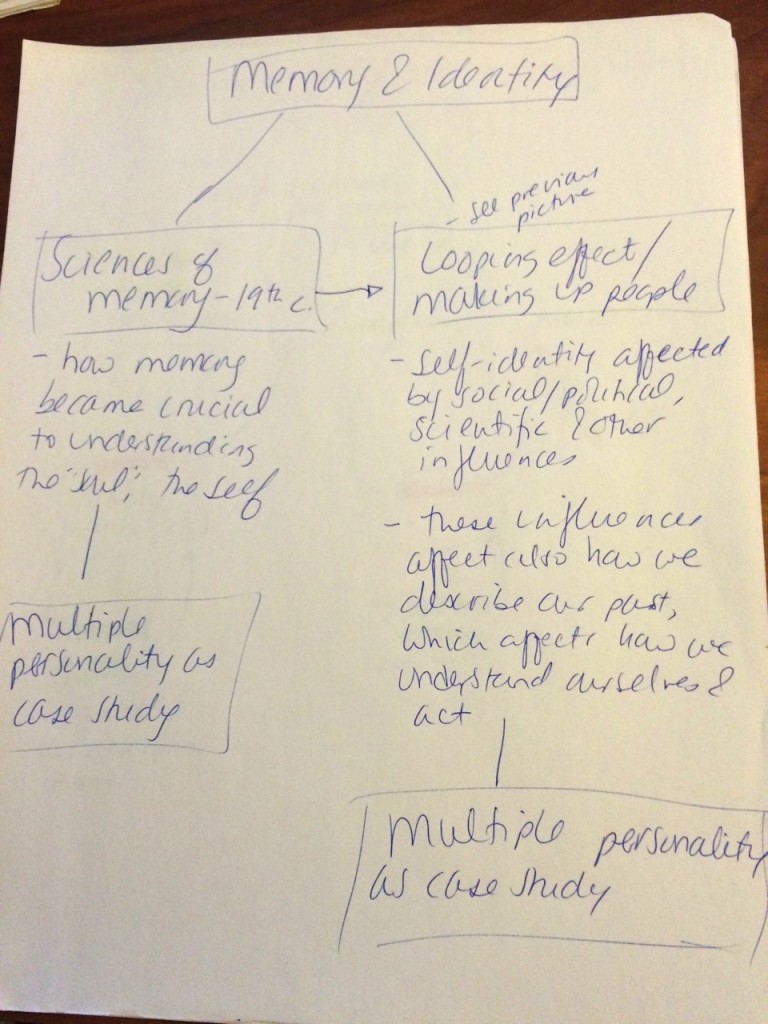 Memory & Identity
- see previous
picture
Sciences of
memory - 19th c.
Looping effect/
making up people
- how memory
became crucial
to understanding
the "soul", the self
Multiple
personality as
case study
- self-identity affected
by social/political,
scientific & other
influences
- these influences
affect also how we
describe our past,
which affects how we
understand ourselves &
act
Multiple personality
as case study